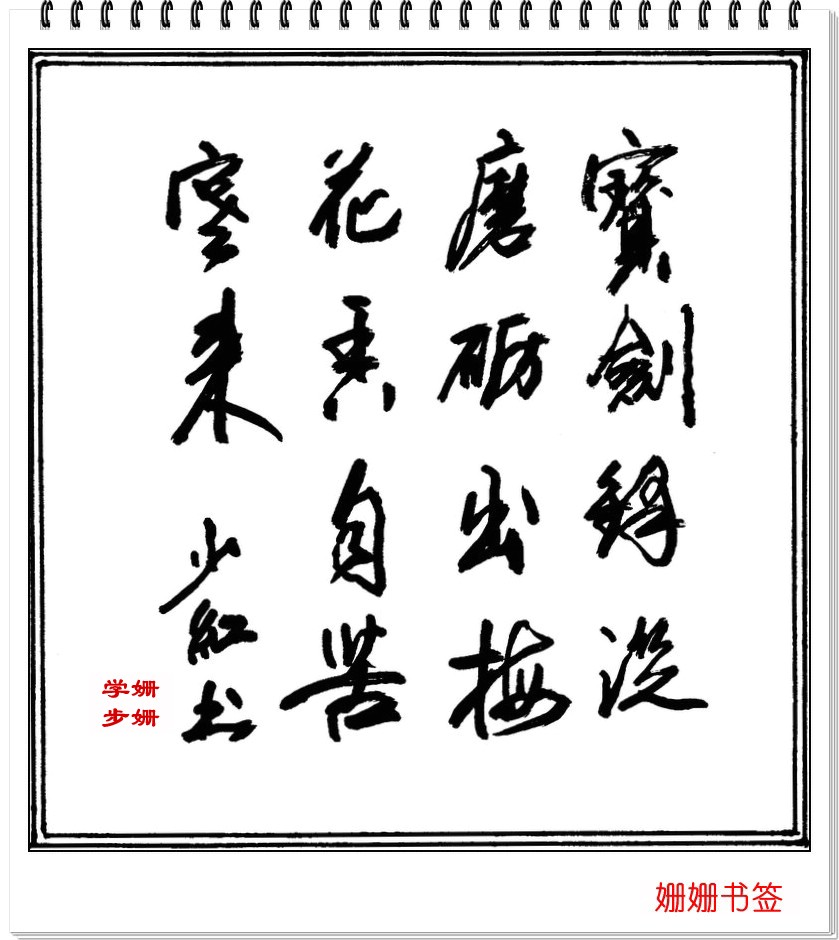 寶劍鋒從
磨砺出梅
花香自苦
寒来
少紅书
姗学
姗步
姗姗书签